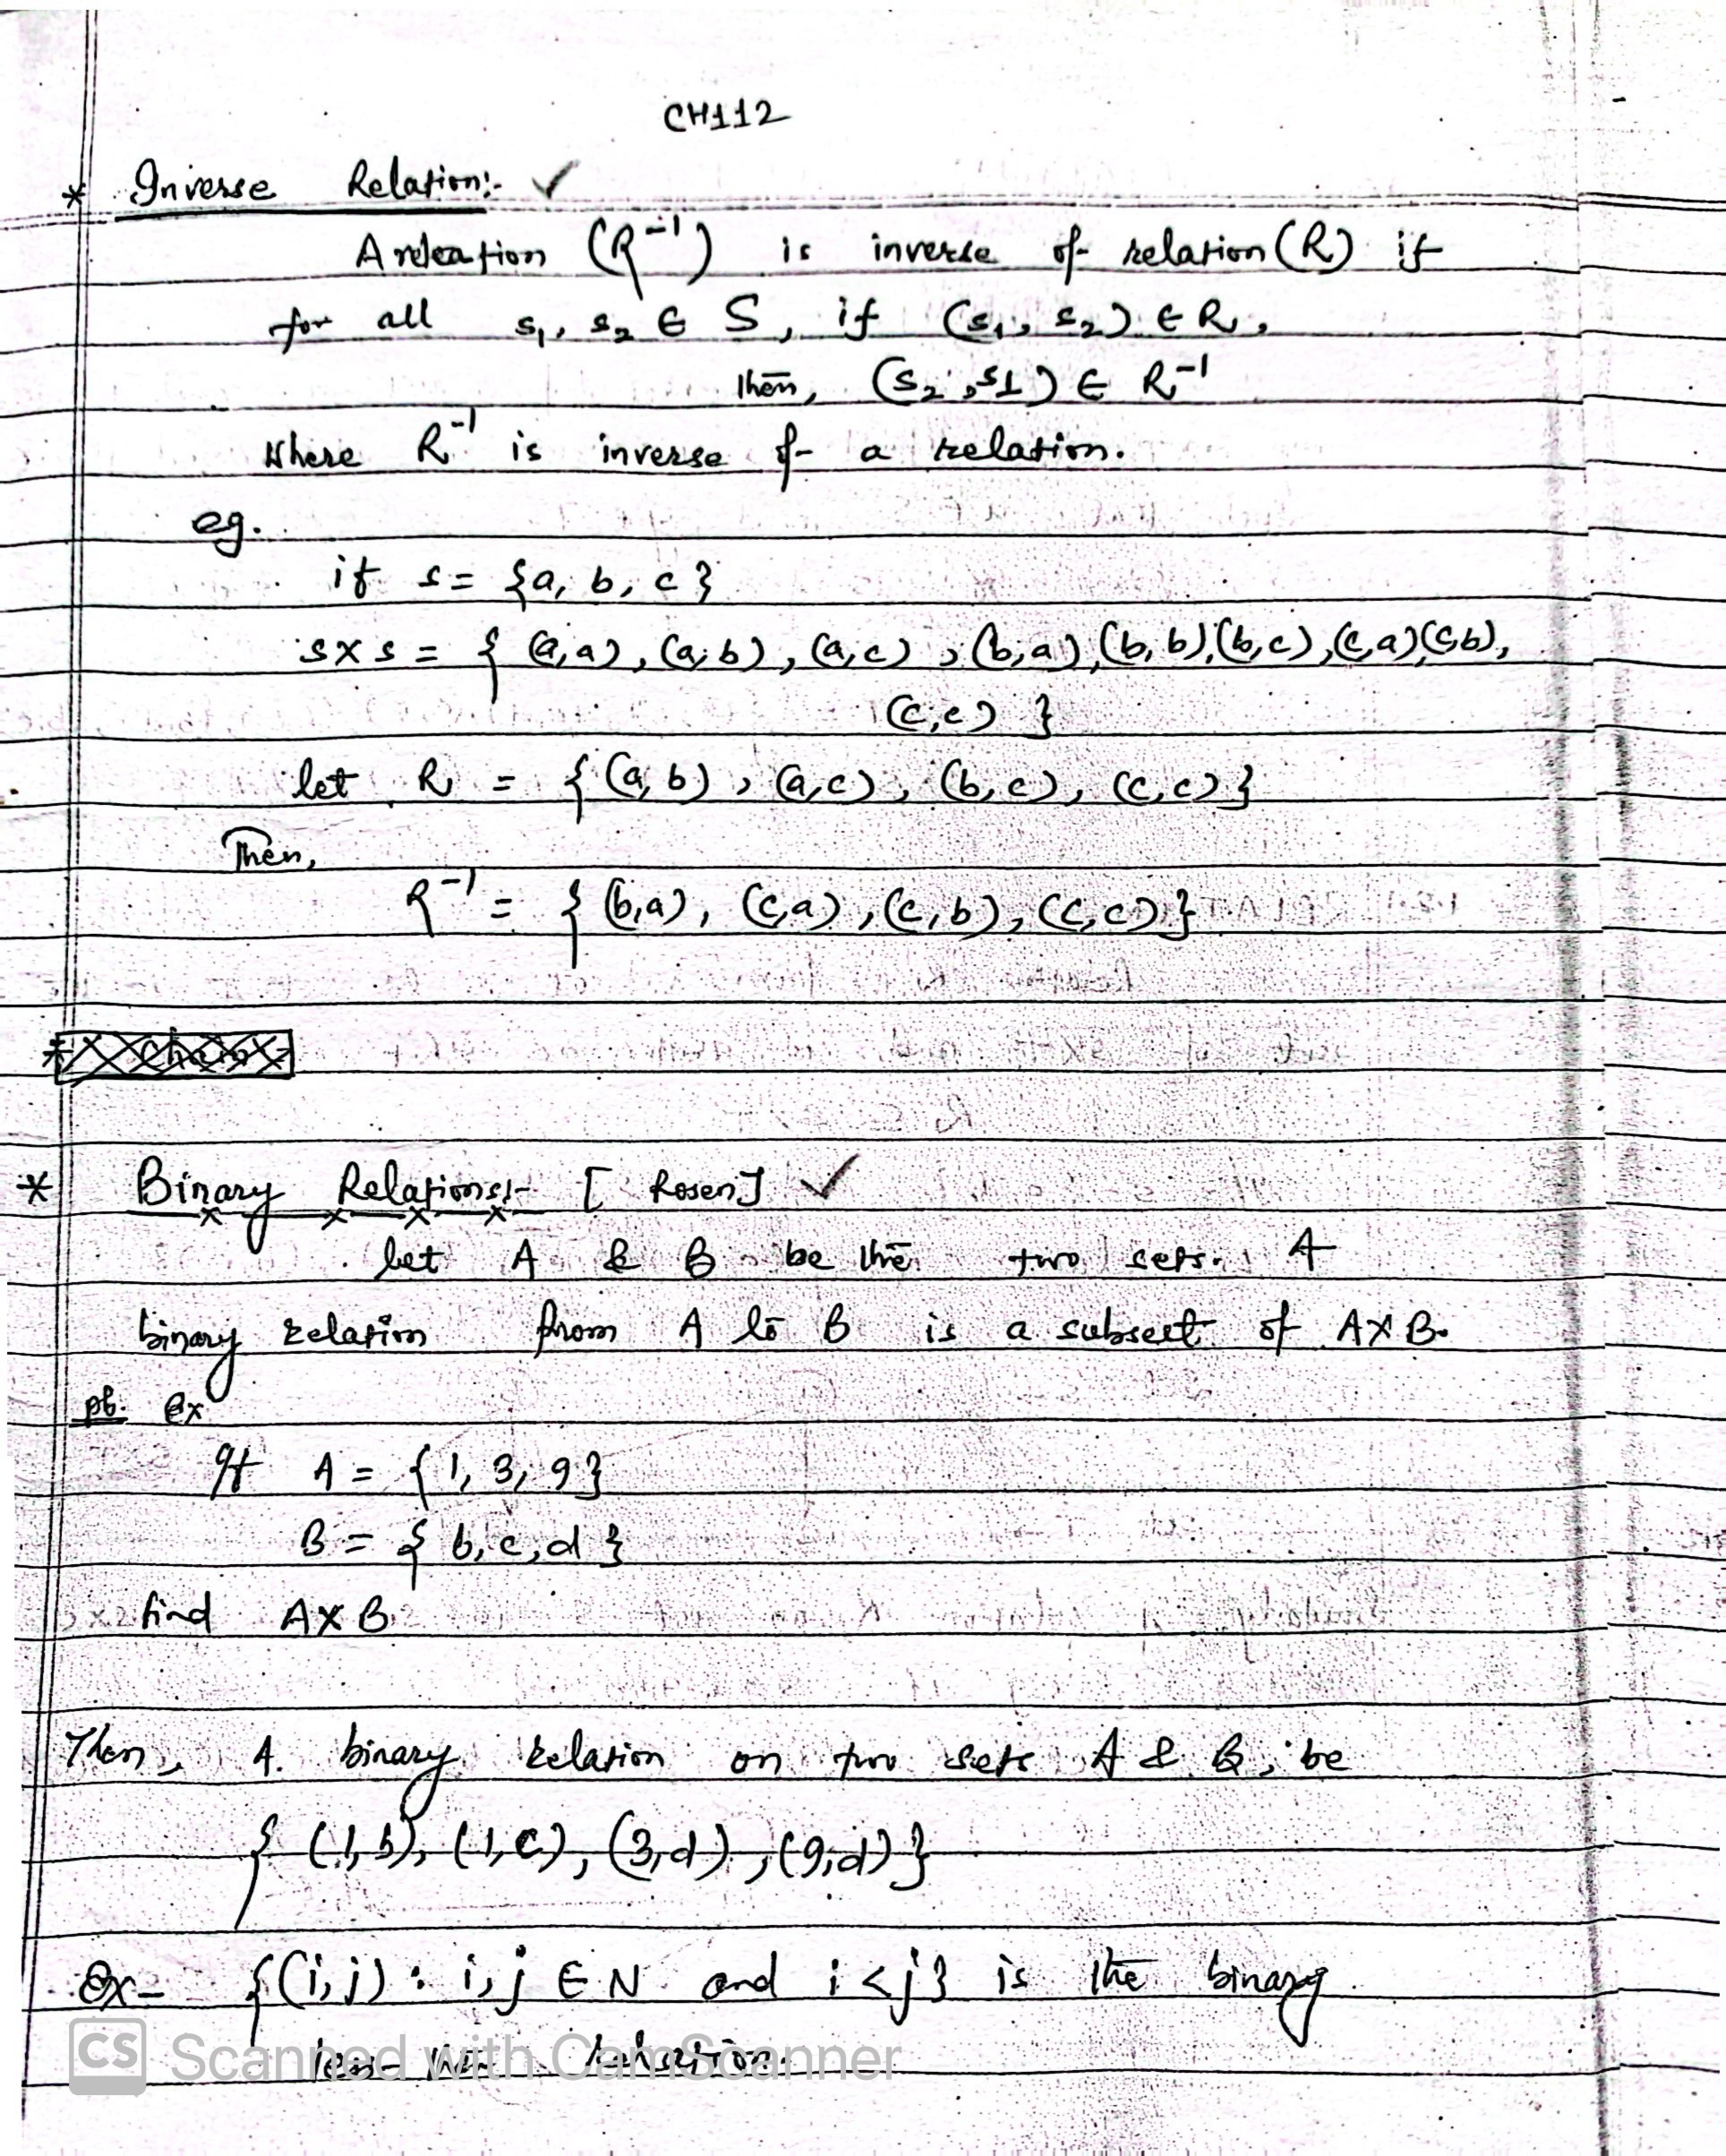 CH112
* Inverse Relation:- ✓
A releation (R⁻¹) is inverse of relation (R) if
for all s₁, s₂ ∈ S, if (s₁, s₂) ∈ R,
then, (s₂, s1) ∈ R⁻¹
Where R⁻¹ is inverse of a relation.
eg.
if s = {a, b, c}
s x s = { (a,a), (a,b), (a,c), (b,a), (b,b), (b,c), (c,a) (c,b),
(c,c) }
let R = { (a,b), (a,c), (b,c), (c,c) }
Then,
R⁻¹ = { (b,a), (c,a), (c,b), (c,c) }
* Binary Relations:- [ Rosen] ✓
let A & B be the two sets. A
binary relation from A to B is a subseet of AXB.
pb. ex
If A = { 1, 3, 9}
B = { b, c, d }
find A X B
Then, A binary relation on two sets A & B, be
{ (1,b), (1,c), (3,d), (9,d) }
ex- {(i,j) : i,j ∈ N and i < j} is the binary
less than relation.
CS Scanned with CamScanner